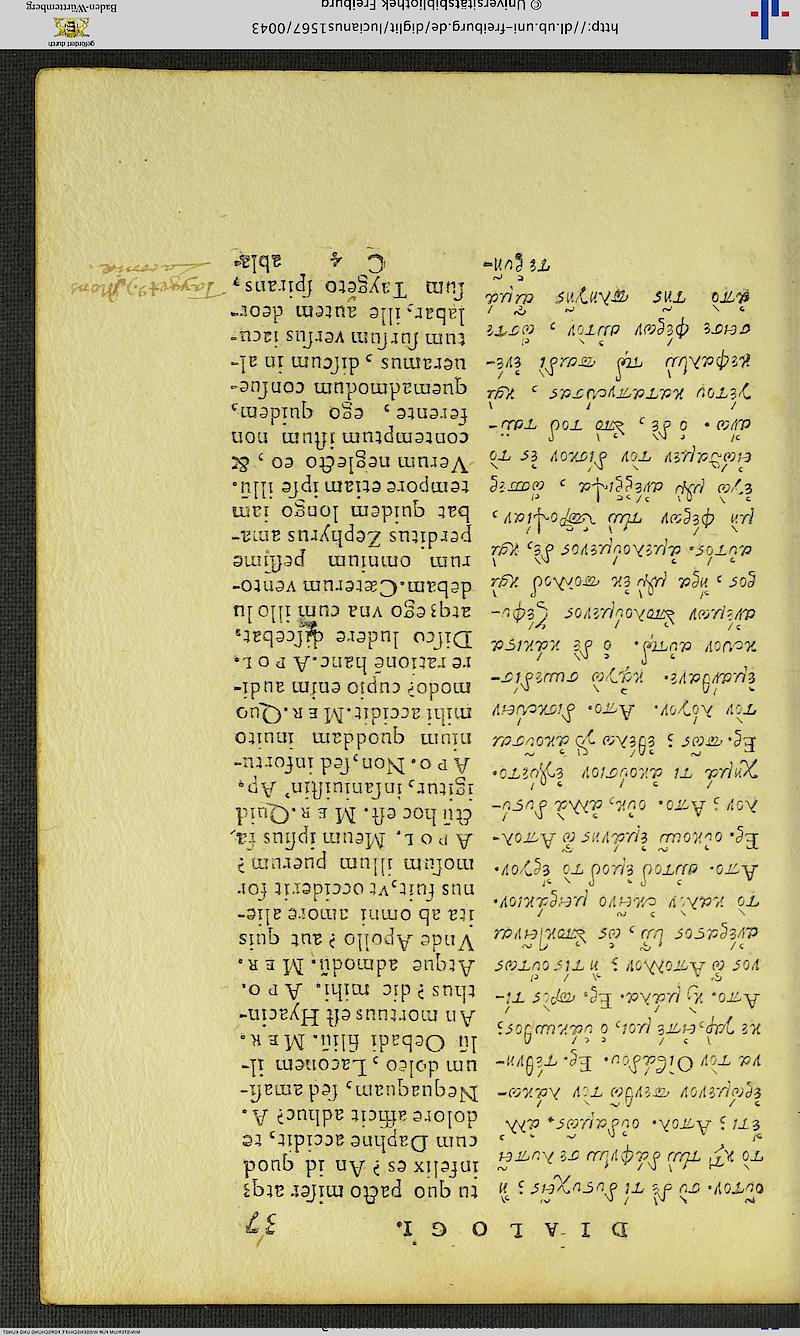 DIALOGI. 37
οὗτον. σὺ δὲ τί δυστυχεῖς; ἢ
τὸ κατὰ τὴν δάφνην σε λυπεῖ
ἔτι; Ἀπολ. οὐδαμῶς. ἀλλ'
ἐρώμενον πενθῶ τὸν λάκω-
να τὸν Οἰβάλου. Ἑρ. τέθνη-
κε γὰρ, εἰπέ μοι, ὁ ὑάκινθος;
Ἀπο. καὶ μάλα. Ἑρ. πρὸς τί-
νος ὦ Ἄπολλον; ἢ τίς οὕτως
ἀνέραστος ἦν, ὡς ἀποκτεῖναι
τὸ καλὸν ἐκεῖνο μειράκιον.
Ἀπο. αὐτοῦ ἐμοῦ τὸ ἔργον.
Ἑρ. οὐκοῦν ἐμάνης ὦ Ἄπολ-
λον; Ἀπο. οὐκ, ἀλλὰ δυσ-
τύχημά τι ἀκούσιον ἐγένετο.
Ἑρ. πῶς; ἐθέλω γὰρ ἀκοῦσαι
τὸν τρόπον. Ἀπο. δισκεύειν
ἐμάνθανε. κἀγὼ συνεδίσ-
κευον αὐτῷ. ὁ δὲ κάκιστα
ἀνέμων ἀπολούμενος ζέφυ-
ρος, ἤρα μὲν ἐκ πολλοῦ καὶ
αὐτὸς. ἀμελούμενος δὲ, καὶ
μὴ φέρων τὴν ὑπεροψίαν,
ἐγὼ μὲν ἀνέρριψα, ὥσπερ
εἰώθειμεν τὸν δίσκον ἐς τὸ
ἄνω. ὁ δὲ, ἀπὸ τοῦ ταϋ-
γέτου καταπνεύσας, καὶ
κεφαλὴν τῷ παιδὶ ἐνέ-
σεισε φέρων αὐτὸν, ὥστε
ἀπὸ τῆς πληγῆς αἷμα
τε ῥυῆ-
tu quo pacto miser atq;
infelix es? An id quod
cum Daphne accidit, te
dolore afficit adhuc? A.
Nequaquam, sed amasi-
um doleo Laconem il-
lũ Oebali filiũ. MER.
An mortuus est Hyacin-
thus? dic mihi. APO.
Atque admodũ. MER.
Vnde Apollo? aut quis
ita ab omni fuit amore alie-
nus fuit, vt occiderit for
mosum illum puerum?
APOL. Meum ipsius fa-
ctũ hoc est. MER. Quid
igitur, insaniuistin, Ap.
APO. Non, sed infortu-
nium quoddam inuito
mihi accidit. MER. Quo
modo? cupio enim audi-
re rationē hanc. APOL.
Disco ludere discebat,
atq; ego vna cum illo lu
debam. Cæterum vento-
rum omnium pessime
perditus Zephyrus ama-
bat quidem longo iam
tempore etiam ipse illũ.
Verum neglecto eo, &
contemptum istum non
ferente, ego quidem,
quemadmodum consue-
ueramus, discum in al-
tum sursum versus iacu-
labar, ille autem deor-
sum Taÿgeto spirans,
C 4 abla-
http://dl.ub.uni-freiburg.de/diglit/lucianus1567/0043
© Universitätsbibliothek Freiburg
gefördert durch
Baden-Württemberg